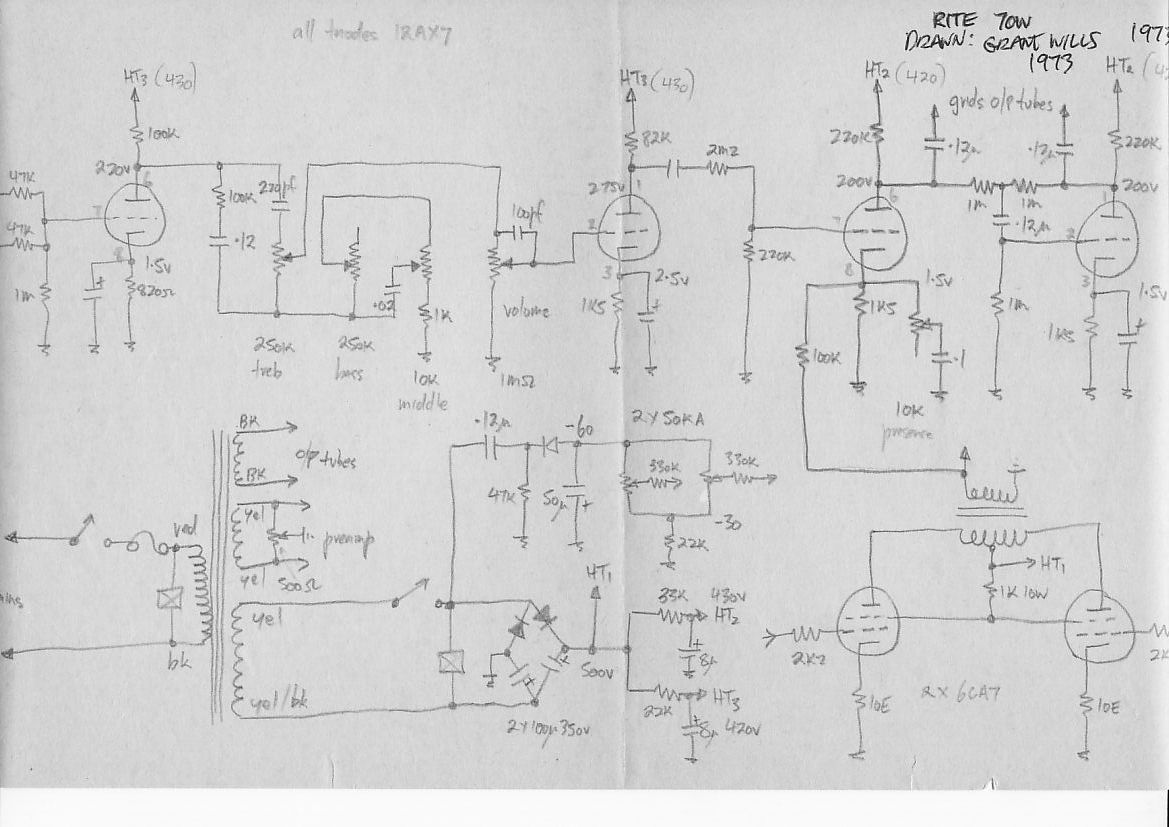 all triodes 12AX7
RITE 70W
DRAWN: GRANT WILLS
1973
1973
HT3 (430)
HT3 (430)
HT2 (420)
HT2
grids o/p tubes
100K
82K
2m2
220K
.12µ
.12µ
220K
47K
220v
6
275v
1
200v
6
1m
1m
1
200v
100K
220pf
7
100pf
2
7
.12µ
2
47K
.12
8
1.5v
3
2.5v
220K
8
1.5v
3
1.5v
1m
820Ω
.02
1K
volume
1K5
1K5
1m
1K5
100K
.1
250K
treb
250K
bass
10K
middle
1mΩ
10K
presence
BK
BK
o/p tubes
.12µ
-60
2 x 50KA
330K
330K
47K
50µ
+
-30
22K
yel
preamp
yel
500Ω
red
bk
yel
yel/bk
HT1
500v
2 x 100µ 350v
33K
430v
HT2
8µ
HT3
22K
8µ
420v
HT1
1K 10W
2K2
10E
2 x 6CA7
10E